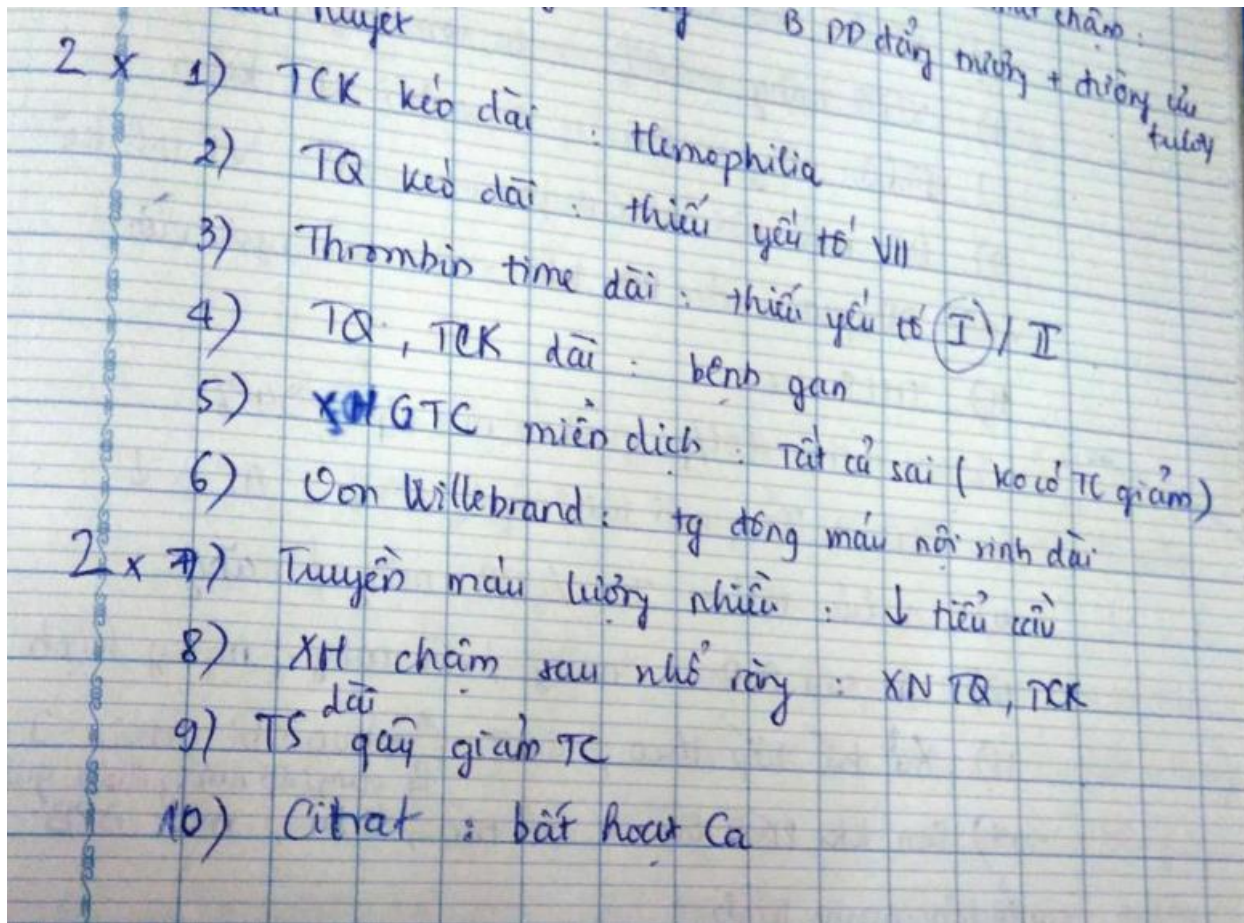 chậm :
B DD đảng trường + đường cầu
tuỷ
2 x 1) TCK kéo dài : Hemophilia
2) TQ kéo dài : thiếu yếu tố VII
3) Thrombin time dài : thiếu yếu tố I / II
4) TQ, TCK dài : bệnh gan
5) XHGTC miễn dịch : Tất cả sai ( ko có TC giảm )
6) Von Willebrand : tg đông máu nội sinh dài
2 x 7) Truyền máu lượng nhiều : ↓ tiểu cầu
8) XH chậm sau nhổ răng : XN TQ, TCK
9) TS dài gãy giảm TC
10) Citrat : bất hoạt Ca